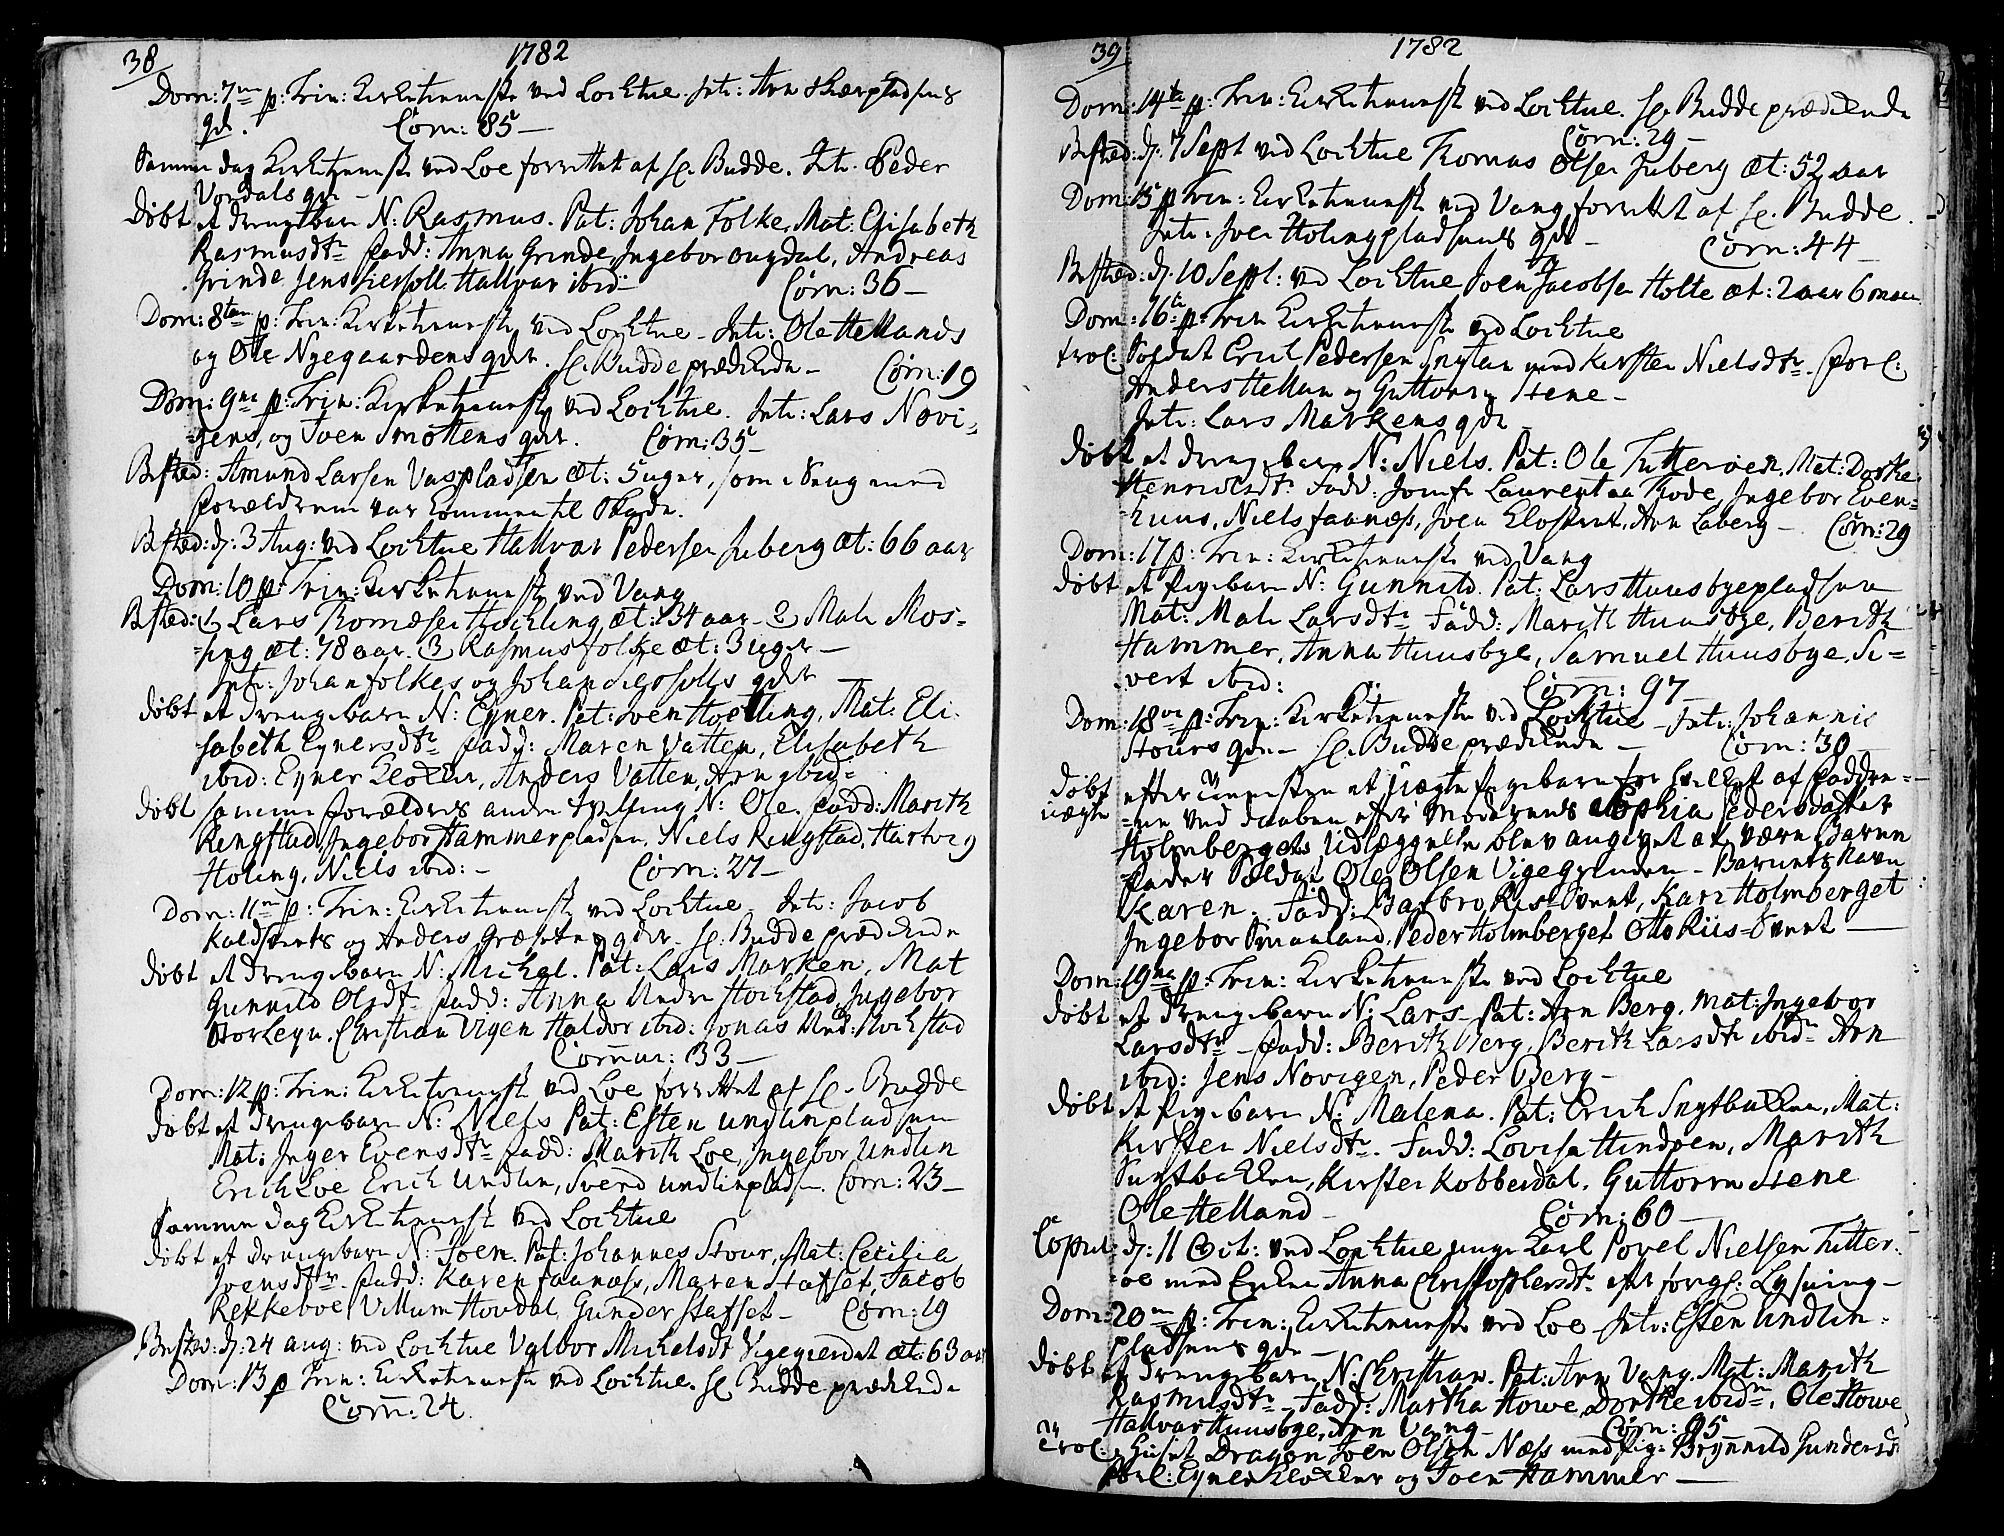 38
1782
Dom: 7me p: Trin: Kirketieniste ved Lochtue. Intr: Arn Skierpladsens
qde. Com: 85 —
Samme dag Kirketieniste ved Loe forrettet af Hr. Budde. Intr: Peder
Vordals qde —
døbt et drengebarn N: Rasmus. Pat: Johan Folke, Mat: Elisabeth
Rasmusdtr Fadd: Anna Grinde, Ingebor Ougdal, Andreas
Grinde, Jens Hallvar ibid: Com: 36 —
Dom: 8tan p: Trin: Kirketieniste ved Lochtue — Intr: Ole Hellands
og Ole Nyegaardens qder. Hr. Budde prædikede — Com: 19
Dom: 9ne p: Trin: Kirketieniste ved Lochtue. Intr: Lars Novi-
gens, og Joen Smøttens qder. Com: 35 —
Bested: Amund Larsen Vuspladsen æt: 5 uger, som i Seng med
Forældrene var kommen til Skade.
Bsted: d: 3 Aug: ved Lochtue Hallvar Pedersen Juberg æt: 66 aar
Dom: 10 p: Trin: Kirketieniste ved Vang
Bsted: 1 Lars Thomæsen Hoeling æt: 34 aar — 2 Mali Mos-
ing æt: 78 aar. 3 Rasmus Folke æt: 3 uger —
Intr: Johan Folkes og Johan qder
døbt et drengebarn N: Eyner. Pat: Sven Hoeling, Mat: Eli-
sabeth Eynersdtr Fadd: Maren Vatten, Elisabeth
ibid: Eyner Klokker, Anders Vatten, Arn ibid:
døbt samme forældres anden Tvilling N: Ole. Fadd: Marith
Ringstad, Ingebor Hammerpladsen, Niels Ringstad, Hartvig
Holing, Niels ibid: — Com: 27 —
Dom: 11m p: Trin: Kirketieniste ved Lochtue — Intr: Jacob
Koldstents og Anders Græsetes qder. Hr. Budde prædikede
døbt et drengebarn N: Michel. Pat: Lars Marken, Mat
Gunnild Olsdtr Fadd: Anna Nedre Hochstad, Ingebor
Storleyn. Christian Vigen Haldor ibid: Jonas Ned: Hochstad
Commu: 33 —
Dom: 12 p: Trin: Kirketieniste ved Loe forrettet af Hr. Budde
døbt et drengebarn N: Niels Pat: Esten Undlinpladsen
Mat: Inger Evensdtr Fadd: Marith Loe, Ingebor Undlin
Erich Loe Erich Undlin, Svend Undlinpladsen. Com: 23 —
Samme dag Kirketieniste ved Lochtue
døbt et drengebarn N: Joen. Pat: Johannes Stour, Mat: Cecilia
Joensdtr. Fadd: Karen Faanæss, Maren Stafset, Jacob
Rekkeboe Villum Hovdal, Gunder Stafset — Com: 19
Bested: d: 24 aug: ved Lochtue Valbor Michelsdt Vigegierdet æt: 63 aar
Dom: 13 p Trin: Kirketieniste ved Lochtue. Hr Budde prædikede
Com: 24.
39
1782
Dom: 14te p: Trin: Kirketieniste ved Lochtue. Hr. Budde prædikede
Com: 29 —
Bested: d: 7 Sept ved Lochtue Thomas Olsen Juberg æt: 52 aar
Dom: 15 p Trin: Kirketieniste ved Vang forrettet af Hr. Budde.
Intr: Joen Holingpladsens qde — Com: 44 —
Bsted: d: 10 Sept: ved Lochtue Joen Jacobsen Holte æt: 2 aar 6 maan
Dom: 16te p: Trin Kirketieniste ved Lochtue
trol: Soldat Erich Pedersen med Kirsten Nielsdtr. Forl:
Anders Hellan og Guttorm Stene —
Intr: Lars Markens qde —
døbt et drengebarn N: Niels. Pat: Ole Fitterøen, Mat: Dorthe
Henrichsdtr. Fadd: Jomfr Laurentaa Thode, Ingebor Even-
huus, Niels Faanæss, Joen Eloskret, Arn Laberg — Com: 29
Dom: 17 p: Trin: Kirketieniste ved Vang
døbt et Pigebarn N: Gunnild. Pat: Lars Huusbyepladsen
Mat: Mali Larsdtr Fadd: Marith Huusbye, Berith
Hammer, Anna Huusbye, Samuel Huusbye, Si-
vert ibid: Com: 97 —
Dom: 18ve p: Trin: Kirketieniste ved Lochtue — Intr: Johannis
Stours qde — Hr. Budde prædikede — Com: 30
døbt efter Tienesten et uægte Pigebarn for hvilket af Faddre-
uægte ne ved daaben efter Moderens Sophia Pedersdatter
Holmbergets Udlæggelse blev angivet at være Barne
Fader Soldat Ole Olsen Vigegrinden — Barnets Navn
Karen. Fadd: Barbro Riis Svent, Kari Holmberget
Ingebor Smaaland, Peder Holmberget Otto Riis Svent —
Dom: 19na p: Trin: Kirketieniste ved Lochtue
døbt et drengebarn N: Lars. Pat: Arn Berg. Mat: Ingebor
Larsdtr — Fadd: Berith Berg, Berith Larsdtr ibid: Arn
ibid: Jens Novigen, Peder Berg —
døbt et Pigebarn N: Malena. Pat: Erich Snytbakken, Mat:
Kirsten Nielsdtr. Fadd: Lovisa Hindøen, Marith
Surtbakken, Kirsten Kobberdal, Guttorm Stene
Ole Helland — Com: 60 —
Copul: d: 11 Oct: ved Lochtue unge Karl Povel Nielsen Fitter-
oe med Enken Anna Christophersdtr efter forig: Lysning —
Dom: 20m p: Trin: Kirketieniste ved Loe — Intr: Esten Undlin-
pladsens qde —
døbt et drengebarn N: Christian. Pat: Arn Vang. Mat: Marith
Rasmusdtr — Fadd: Martha Howe, Dorthe ibidm, Ole Howe
Hallvar Huusbye, Arn Vang — Com: 95 —
trol: Dragon Joen Olsen Næss med Pige Brynnild Gundersd
Forl: Eyner Klokker og Joen Hammer —